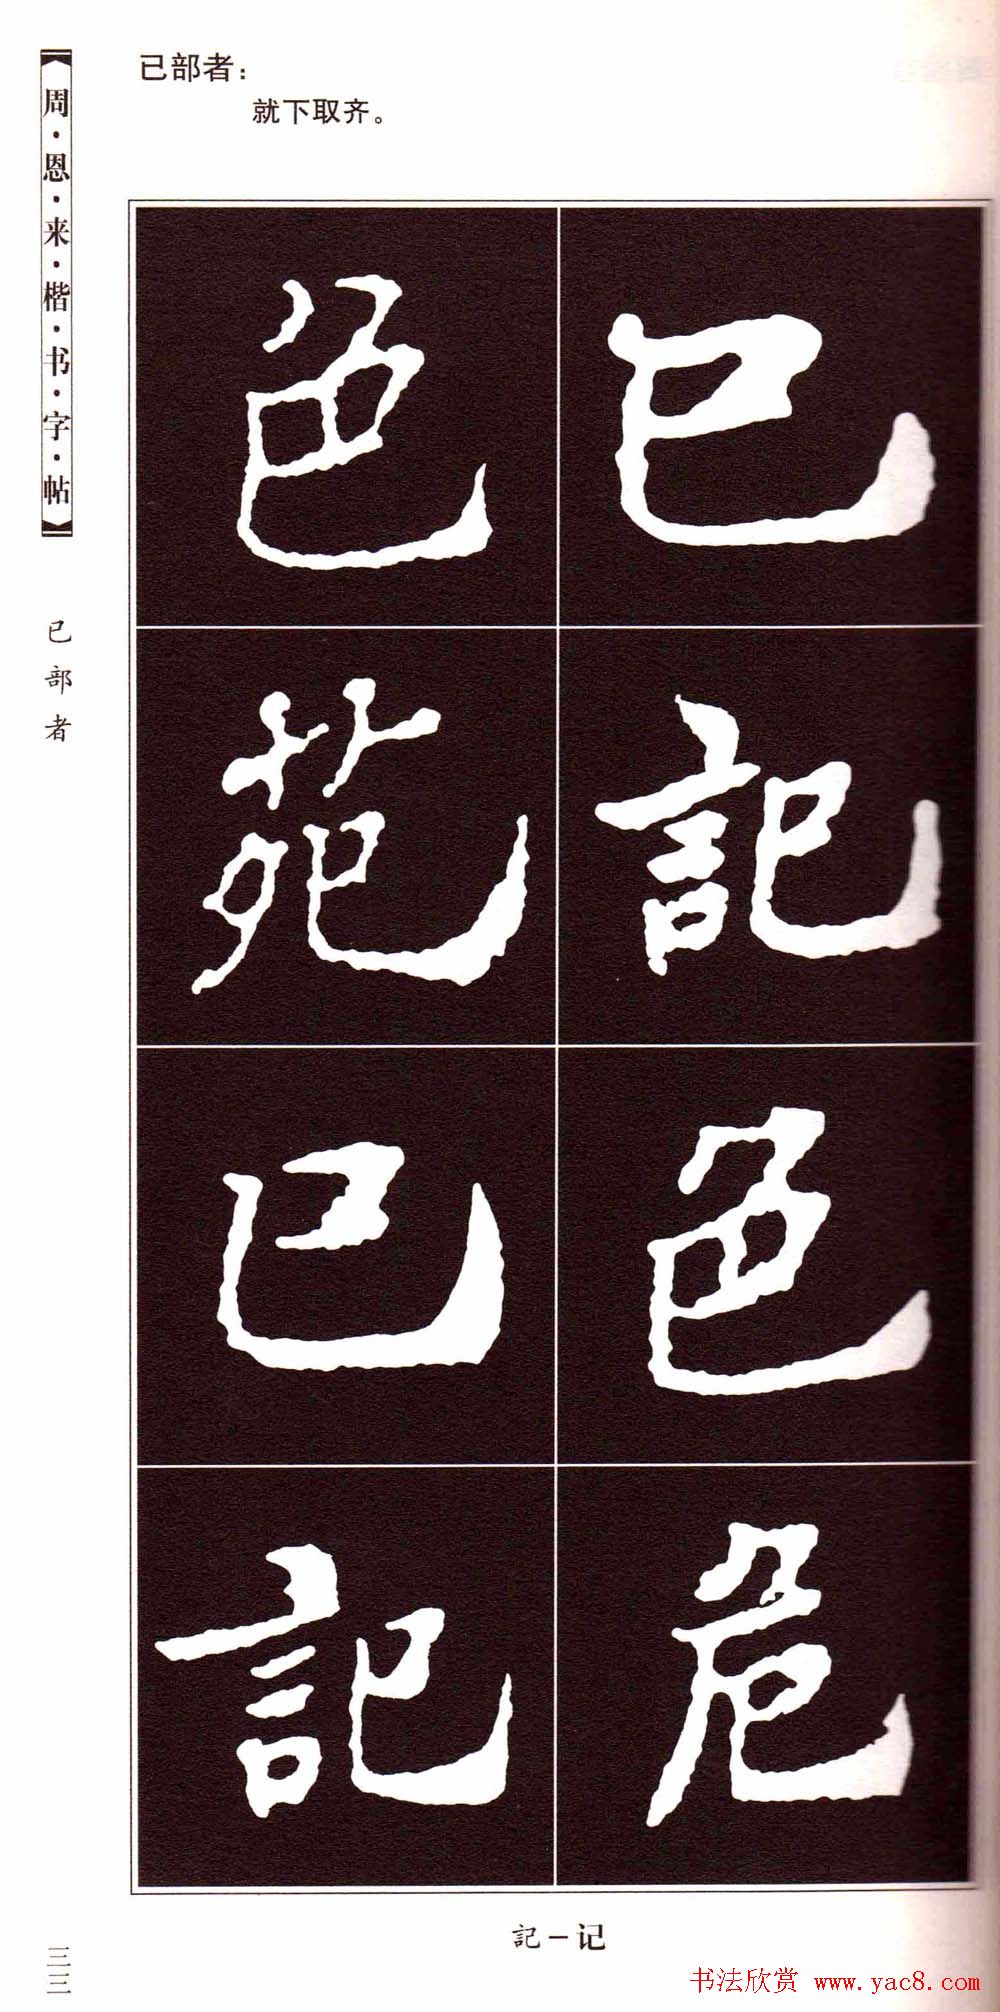 已部者：
就下取齐。
周·恩·来·楷·书·字·帖
已部者
已記色危
色苑已記
記－记
三三
书法欣赏 www.yac8.com